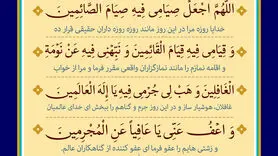 اللَّهُمَّ اجْعَلْ صِيَامِي فِيهِ صِيَامَ الصَّائِمِينَ
خدایا روزه مرا در این روز مانند روزه روزه داران حقیقی قرار ده
وَ قِيَامِي فِيهِ قِيَامَ الْقَائِمِينَ وَ نَبِّهْنِي فِيهِ عَنْ نَوْمَةِ
و اقامه نمازم را مانند نمازگزاران واقعی مقرر فرما و مرا از خواب
الْغَافِلِينَ وَ هَبْ لِي جُرْمِي فِيهِ يَا إِلَهَ الْعَالَمِينَ
غافلان، هوشیار ساز و در این روز جرم و گناهم را ببخش ای خدای عالمیان
وَ اعْفُ عَنِّي يَا عَافِيًا عَنِ الْمُجْرِمِينَ
و زشتی هایم را عفو فرما ای عفو کننده از گناهکاران عالم.